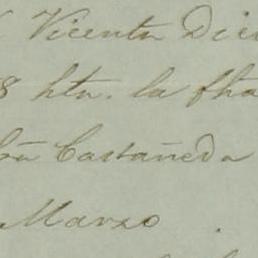 Vicenta Dic
8 htn. la fha
Castañeda
Marzo